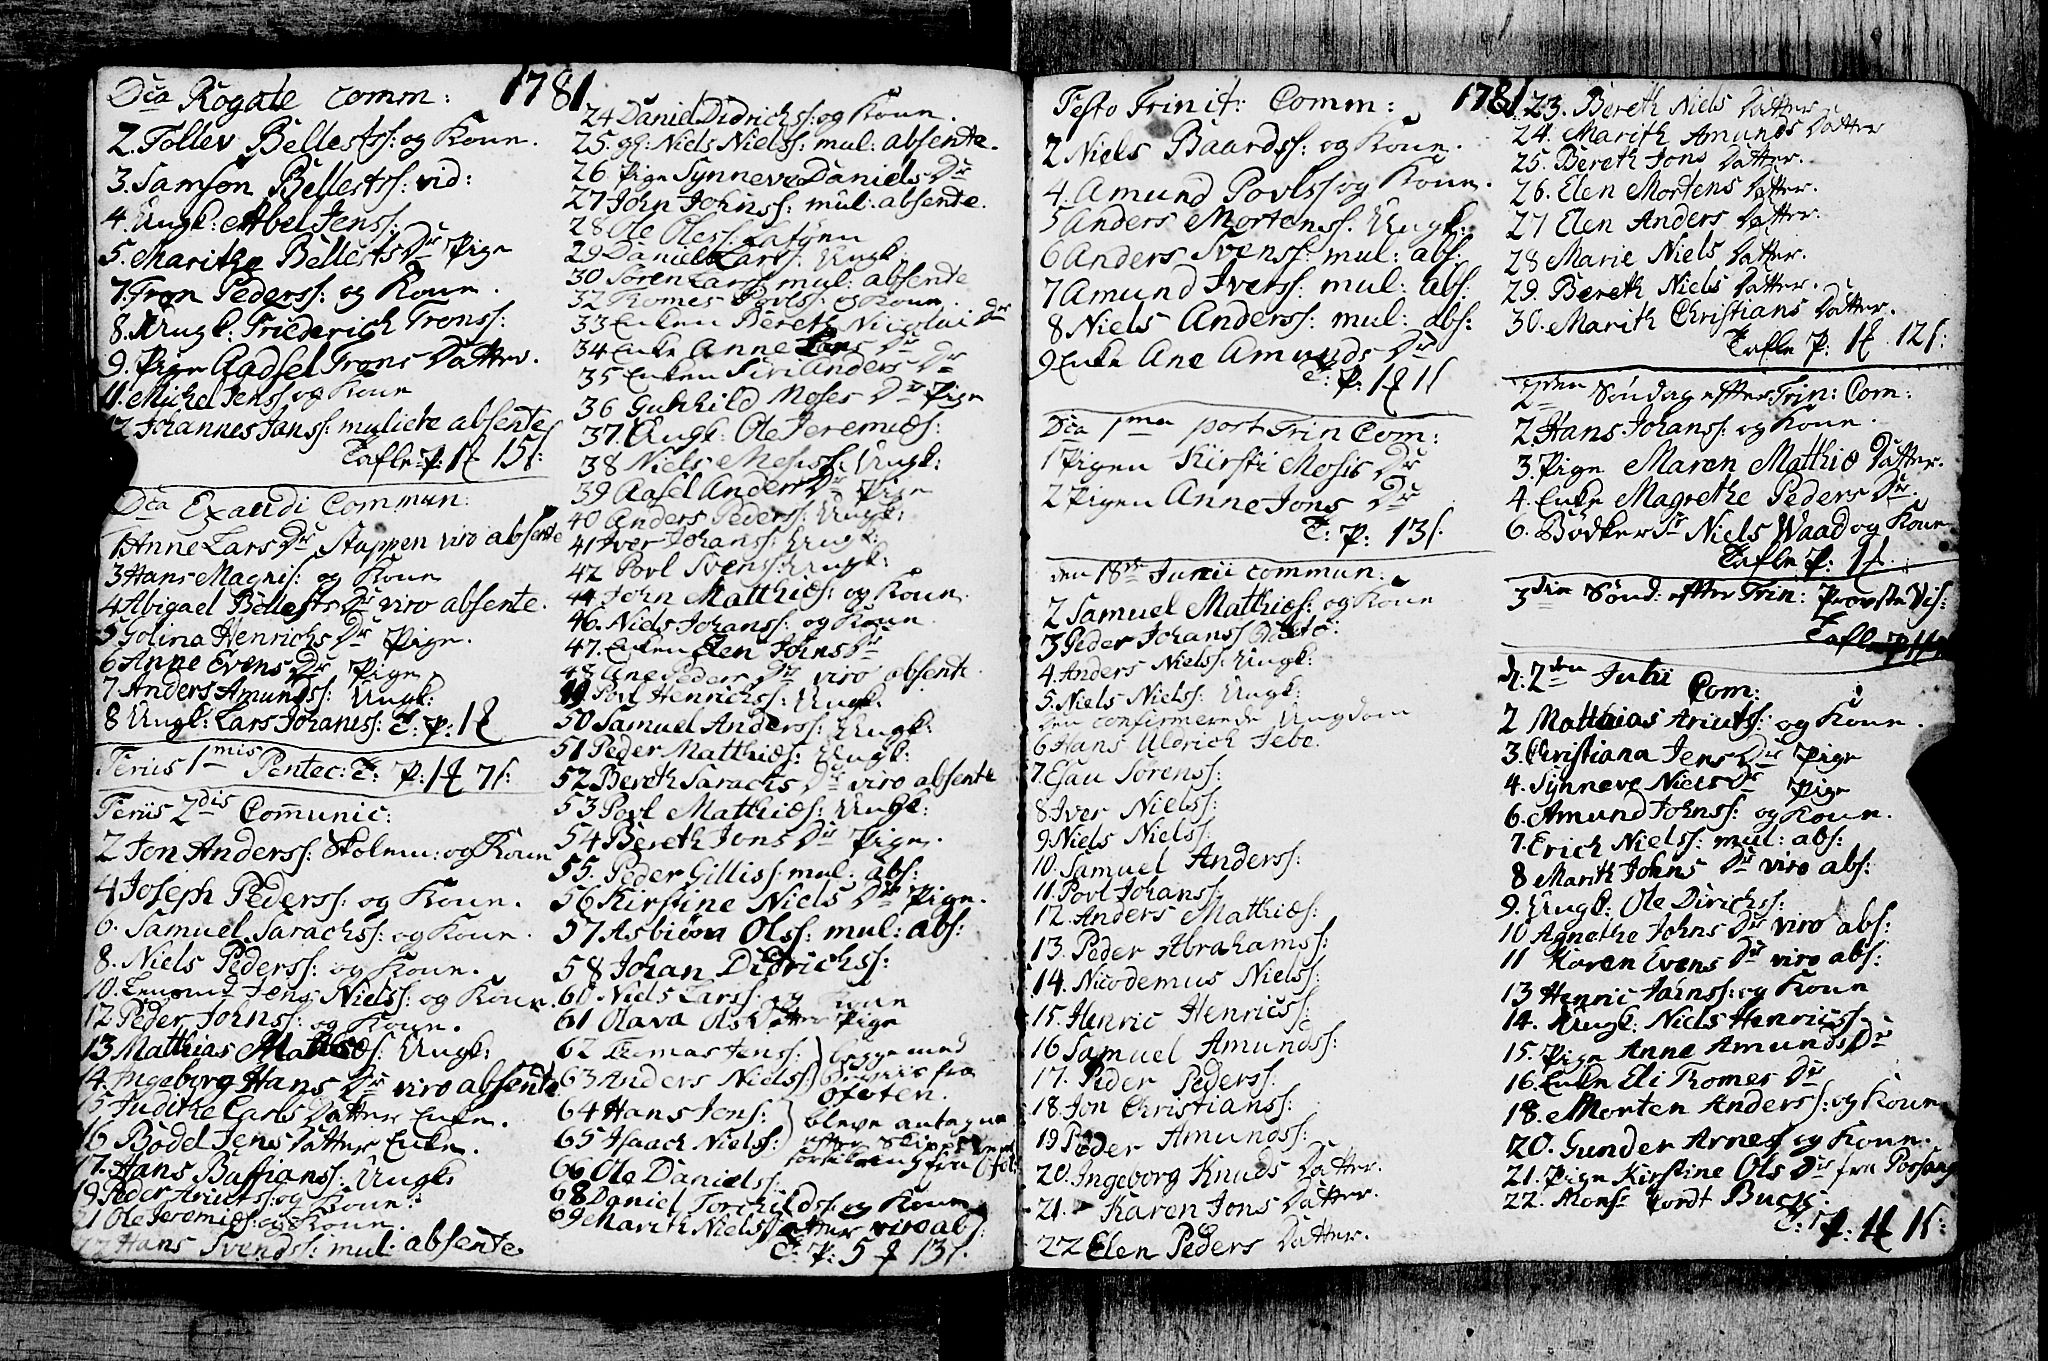 Dca Rogate comm: 1781
2. Tollev Bellestss: og Kone.
3. Samson Bellestss: vid:
4. Ungk: Abel Jenss:
5. Marithe Bellests Dr Pige
7. Tron Pederss: og Kone.
8. Ungk: Friderich Tronss:
9. Pige Aadsel Trons Datter.
11. Michel Jenss og Kone
12 Johannes Janss: muliere absente
Tafle p: 1 15s:
Dca Exaudi Commun:
1 Anne Lars Dr Stappen viro absente
3 Hans Magnis: og Kone
4 Abigael Bellests Dr viro absente.
5 Golina Henrichs Dr Pige.
6 Anne Evens Dr Pige
7 Anders Amundss: Ungk:
8 Ungk: Lars Johanss: T: p: 1
Feriis 1mis Pentec: T: p: 1 7s:
Feriis 2dis Comunic:
2 Jon Anderss: Stolen: og Kone
4 Joseph Pederss: og Kone.
6. Samuel Sarachss: og Kone.
8. Niels Pederss: og Kone.
10. Jens Nielss: og Kone.
12 Peder Johnss: og Kone.
13 Mathias Ungk:
14. Ingeborg Hans Dr viro absente
15 Judithe Carls Datter Enke.
16 Bodel Jens Datter Enke.
17. Hans Baffianss: Ungk
19 Peder Ariutss: og Kone:
21 Ole Jeremiæs: og Kone.
22 Hans Svendss: mul: absente
24 Daniel Didrichss: og Kone.
25. gg: Niels Nielss: mul: absente.
26 Pige Synneve Daniels Dr
27 John Johnss: mul: absente.
28 Ole Oless:
29 Daniel Larss: Ungk:
30 Søren Larss mul: absente
32 Thomes Povlss: og Kone.
33 Enken Bereth Nicolai Dr
34 Enke Anne Lars Dr
35 Enken Siri Anders Dr
36 Gunhild Moses Dr Pige
37. Ungk: Ole Jeremiæs:
38 Niels Mosess: Ungk:
39 Aasel Anders Dr Pige
40 Anders Pederss: Ungk:
41 Iver Johanss: Ungk:
42 Povl Svenss: Ungk:
44 John Matthiæs: og Kone.
46. Niels Johanss: og Kone.
47. Enken Elen Johns Dr
48 Ane Peders Dr viro absente.
49 Povl Henrichss: Ungk.
50 Samuel Anderss: Ungk:
51 Peder Matthiæs: Ungk:
52 Bereth Sarachs Dr viro absente
53 Povl Matthiæs: Ungk:
54 Bereth Jons Dr Pige.
55. Peder Gilliss: mul: abs:
56 Kirstine Niels Dr Pige.
57 Asbiørn Olss: mul: abs:
58 Johan Didrichss:
60 Niels Larss: og Kone
61 Olava Ols Datter Pige
62 Thomas Jenss: begge med
63 Anders Nielss: fra Ofoten.
64 Hans Jens: bleve antagne
65 Isaach Nielss: efter
66 Ole Danielss:
68 Daniel Torchildss: og Kone
69 Marith Niels Datter viro abs:
T: p: 5 13s.
Festo Trinit: Comm: 1781
2 Niels Baardss: og Kone.
4. Amund Povlss og Kone.
5 Anders Mortenss. Ungk:
6 Anders Svenss: mul: abs:
7 Amund Iverss: mul: abs:
8 Niels Anderss: mul: abs:
9 Enke Ane Amunds Dr
T: p: 1 1s
Dca 1ma post Trin Com:
1 Pigen Kirsti Mosis Dr
2 Pigen Anne Jons Dr
T: p: 13s.
den 18de Junii commun:
2 Samuel Matthiæs: og Kone
3 Peder Johanss
4 Anders Nielss: Ungk:
5. Niels Nielss: Ungk:
Den confirmerede Ungdom
6 Hans Uldrich Jebe.
7. Esau Sørenss:
8. Iver Nielss:
9. Niels Nielss:
10. Samuel Anderss:
11. Povl Johanss:
12. Anders Mathiæs:
13. Peder Abrahamss:
14. Nicodemus Nielss:
15. Henric Henricss:
16 Samuel Amundss:
17. Peder Pederss.
18. Jon Christianss:
19 Peder Amundss:
20. Ingeborg Knuds Datter.
21. Karen Jons Datter.
22 Elen Peders Datter.
23. Bereth Niels Datter
24. Marith Amunds Datter
25. Bereth Jons Datter.
26. Elen Mortens Datter.
27 Elen Anders Datter.
28 Marie Niels Datter.
29. Bereth Niels Datter.
30. Marith Christians Datter.
Tafle P: 1 12s:
2den Søndag efter Trin: Com:
2 Hans Johanss: og Kone.
3. Pige Maren Mathiæ Datter.
4. Enke Magrethe Peders Dr.
6. Bødker Sr Niels Waad og Kone
Tafle p: 1
3die Sønd: efter Trin: Provste Vis:
Tafle
d: 2den Julii Com:
2 Matthias Ariutss: og Kone.
3. Christiana Jens Dr Pige
4. Synneve Niels Dr Pige
6. Amund Johnss: og Kone.
7. Erich Nielss: mul: abs:
8 Marith Johns Dr viro abs:
9. Ungk: Ole Dirichss:
10 Agnethe Johns Dr viro abs:
11 Karen Evens Dr viro abs:
13 Henric og Kone
14. Ungk: Niels Henricss
15. Pige Anne Amunds Dr
16. Enke Eli Thomes Dr
18. Morten Anderss: og Kone
20. Gunder Arnes og Kone.
21. Pige Kirstine Ols Dr fra Porsang
22. Mons Cordt Buck.
T: p: 1 1s: